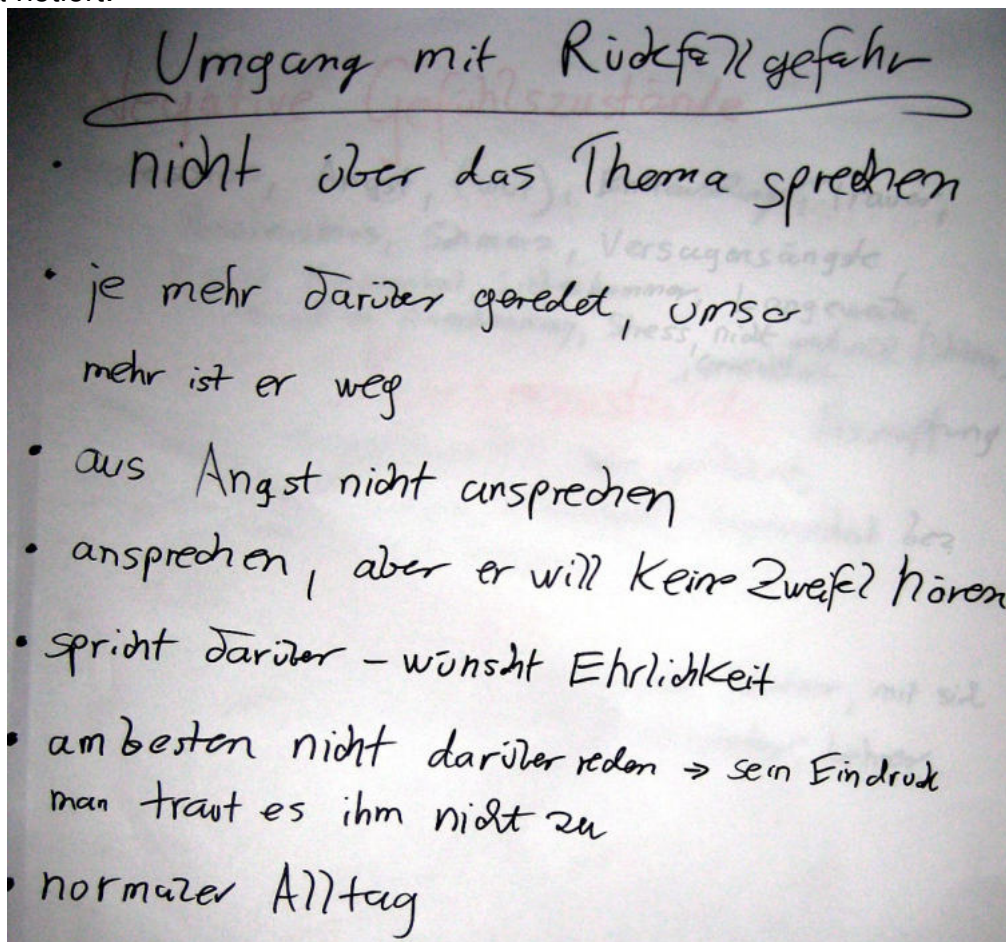 Umgang mit Rückfallgefahr
Negative Gefühlszustände
• nicht über das Thema sprechen
Versagensängste
• je mehr darüber geredet, umso
Stress, nicht
mehr ist er weg
• aus Angst nicht ansprechen
• ansprechen, aber er will keine Zweifel hören
• spricht darüber – wünscht Ehrlichkeit
mit sich
• am besten nicht darüber reden → sein Eindruck
man traut es ihm nicht zu
• normaler Alltag